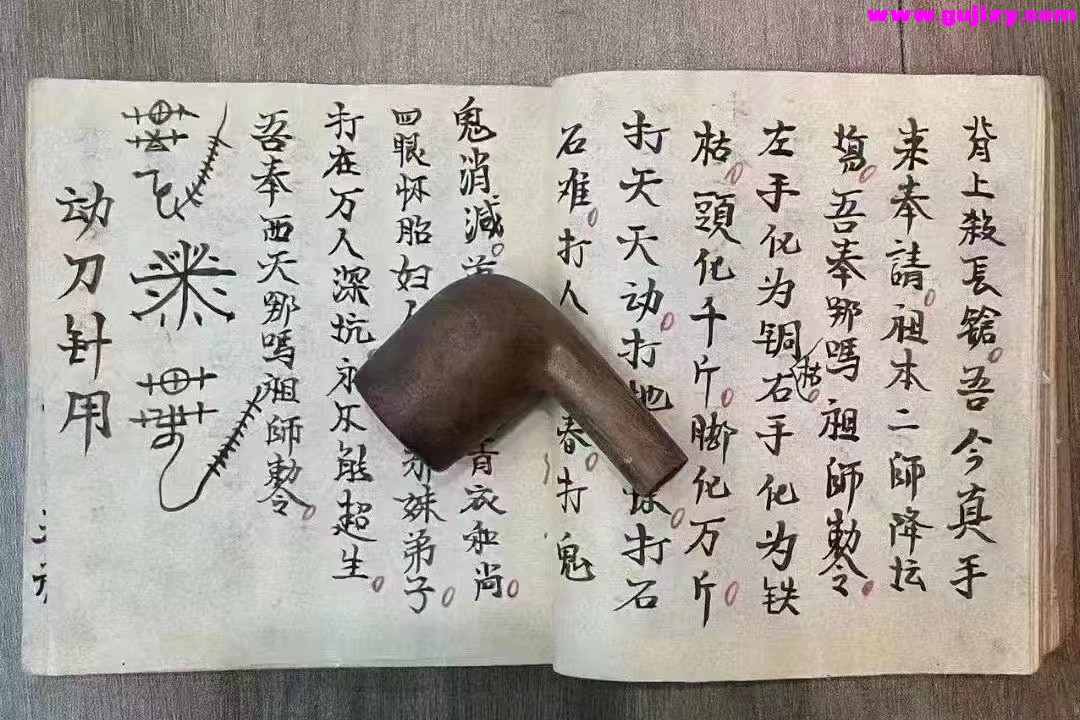 www.gujizy.com
背上殺長鎗。吾今真手
来奉請。祖本二師降坛
塲。吾奉哪嗎祖師勅令。
左手化为铜枯。右手化为铁
枯。頭化千斤。脚化万斤。
打天天动。打地 打石
石难。打人 春。打鬼
鬼消減。 青衣和尚。
四眼怀胎妇人 妹弟子。
打在万人深坑永不能超生。
吾奉西天哪嗎祖師勅令。
动刀针用